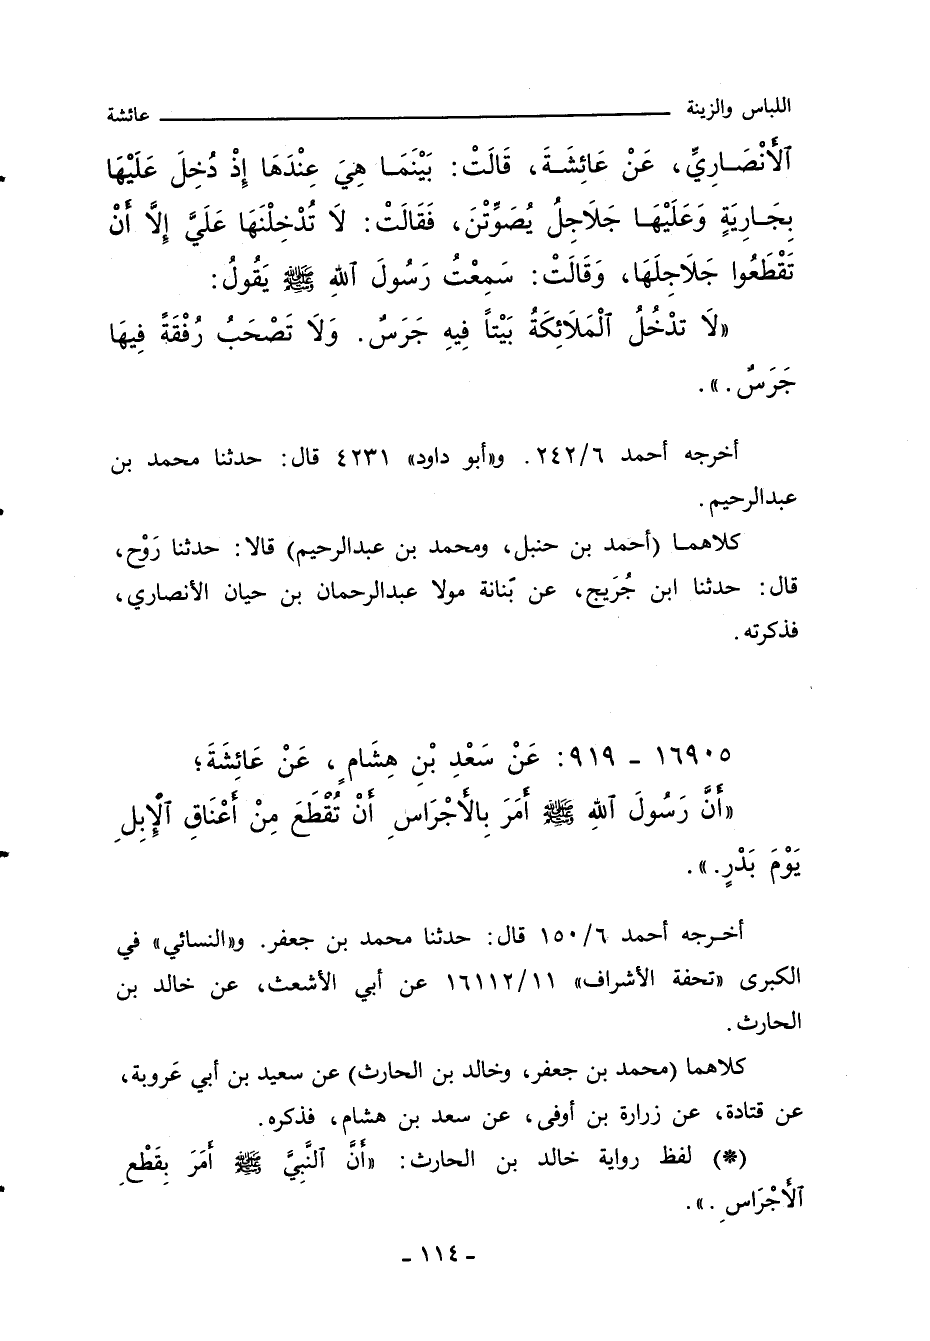 اللباس والزينة عائشة
ٱلْأَنْصَارِيِّ، عَنْ عَائِشَةَ، قَالَتْ: بَيْنَمَا هِيَ عِنْدَهَا إِذْ دُخِلَ عَلَيْهَا
بِجَارِيَةٍ وَعَلَيْهَا جَلَاجِلُ يُصَوِّتْنَ، فَقَالَتْ: لَا تُدْخِلْنَهَا عَلَيَّ إِلَّا أَنْ
تَقْطَعُوا جَلَاجِلَهَا، وَقَالَتْ: سَمِعْتُ رَسُولَ ٱللهِ ﷺ يَقُولُ:
«لَا تَدْخُلُ ٱلْمَلَائِكَةُ بَيْتاً فِيهِ جَرَسٌ. وَلَا تَصْحَبُ رُفْقَةً فِيهَا
جَرَسٌ.».
أخرجه أحمد ٢٤٢/٦. و«أبو داود» ٤٢٣١ قال: حدثنا محمد بن
عبدالرحيم.
كلاهما (أحمد بن حنبل، ومحمد بن عبدالرحيم) قالا: حدثنا رَوْح،
قال: حدثنا ابن جُرَيج، عن بُنانة مولا عبدالرحمان بن حيان الأنصاري،
فذكرته.
١٦٩٠٥ - ٩١٩: عَنْ سَعْدِ بْنِ هِشَامٍ، عَنْ عَائِشَةَ؛
«أَنَّ رَسُولَ ٱللهِ ﷺ أَمَرَ بِالْأَجْرَاسِ أَنْ تُقْطَعَ مِنْ أَعْنَاقِ ٱلْإِبِلِ
يَوْمَ بَدْرٍ.».
أخرجه أحمد ١٥٠/٦ قال: حدثنا محمد بن جعفر. و«النسائي» في
الكبرى «تحفة الأشراف» ١٦١١٢/١١ عن أبي الأشعث، عن خالد بن
الحارث.
كلاهما (محمد بن جعفر، وخالد بن الحارث) عن سعيد بن أبي عَروبة،
عن قتادة، عن زرارة بن أوفى، عن سعد بن هشام، فذكره.
(*) لفظ رواية خالد بن الحارث: «أَنَّ ٱلنَّبِيَّ ﷺ أَمَرَ بِقَطْعِ
ٱلْأَجْرَاسِ.».
- ١١٤ -